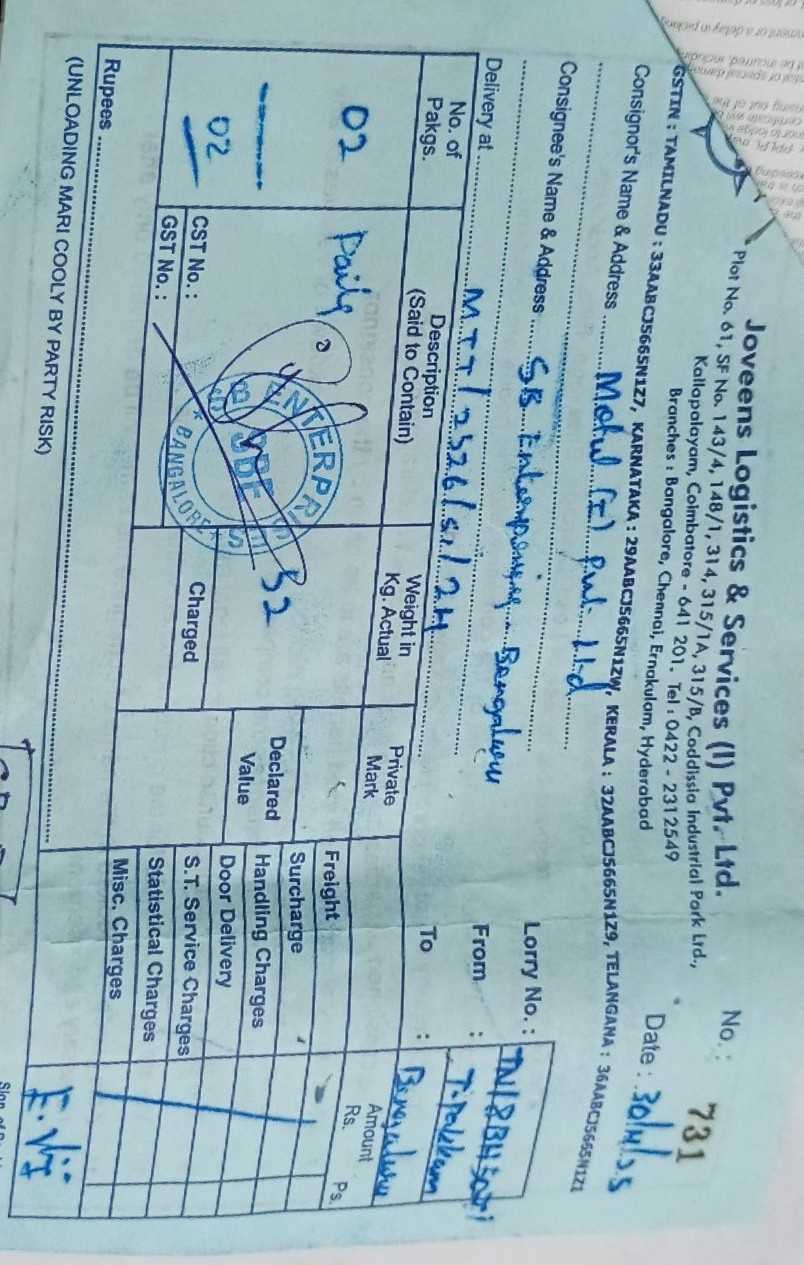 Joveens Logistics & Services (I) Pvt. Ltd.
Plot No. 61, SF No. 143/4, 148/1, 314, 315/1A, 315/B, Coddissia Industrial Park Ltd.,
Kallapalayam, Coimbatore - 641 201. Tel : 0422 - 2312549
Branches : Bangalore, Chennai, Ernakulam, Hyderabad
GSTIN : TAMILNADU : 33AABCJ5665N1Z7, KARNATAKA : 29AABCJ5665N1ZW, KERALA : 32AABCJ5665N1Z9, TELANGANA : 36AABCJ5665N1Z1
No. : 731
Date : 30/4/25
Consignor's Name & Address Motul (I) Pvt. Ltd
Consignee's Name & Address SB Enterprises Bengaluru
Delivery at MTT/2526/51/24
Lorry No. :
From :
To : Bengaluru
No. of Pakgs.
Description (Said to Contain)
Weight in Kg. Actual
Private Mark
Amount
Rs. Ps.
02 Pails 32
02
ENTERPRISES
BANGALORE
Freight
Surcharge
Handling Charges
Door Delivery
S.T. Service Charges
Statistical Charges
Misc. Charges
Declared Value
Charged
CST No. :
GST No. :
Rupees
(UNLOADING MARI COOLY BY PARTY RISK)